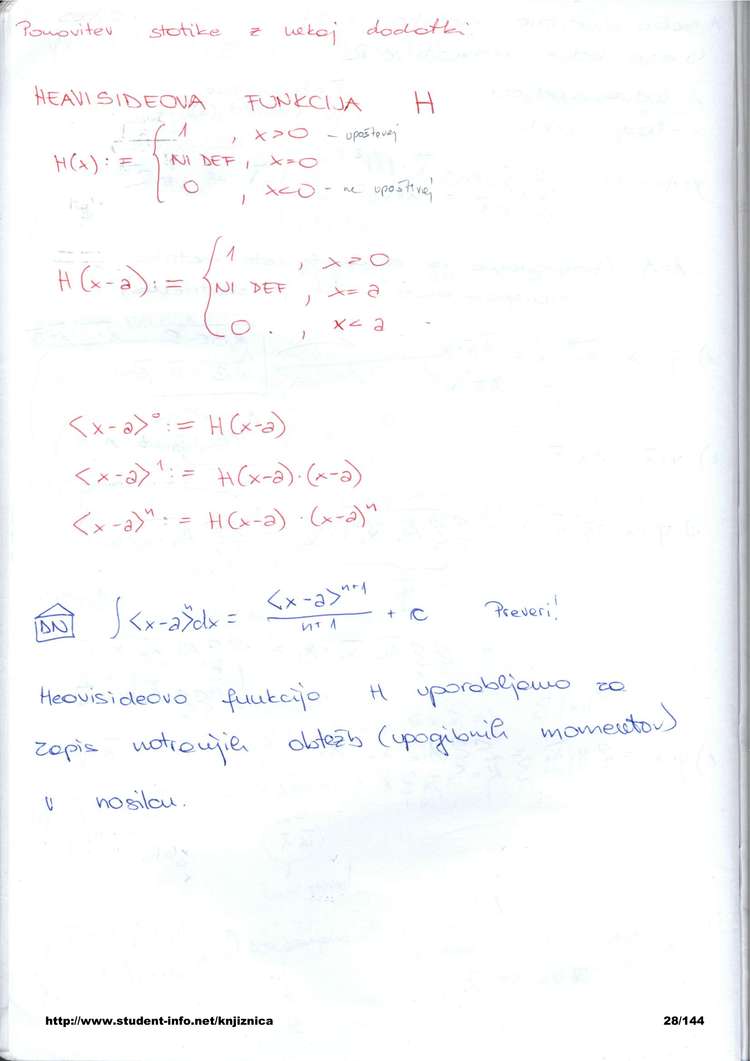 Ponovitev statike z nekaj dodatki
HEAVISIDEOVA FUNKCIJA H
H(x) := { 1 , x>0 – upoštevaj
NI DEF , x=0
0 , x<0 – ne upoštevaj
H(x-a) := { 1 , x>0
NI DEF , x=a
0 . , x<a
<x-a>⁰ := H(x-a)
<x-a>¹ := H(x-a)·(x-a)
<x-a>ⁿ := H(x-a)·(x-a)ⁿ
DN ∫<x-a>ⁿdx = <x-a>ⁿ⁺¹ / n+1 + C Preveri!
Heavisideovo funkcijo H uporabljamo za
zapis notranjih obtežb (upogibnih momentov)
v nosilcu.
http://www.student-info.net/knjiznica 28/144